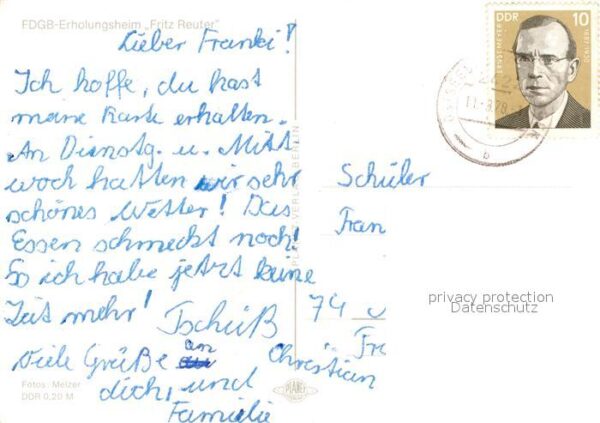 FDGB-Erholungsheim „Fritz Reuter"
Lieber Franki!
Ich hoffe, du hast
meine Karte erhalten.
An Dienstg. u. Mitt
woch hatten wir sehr
schönes Wetter! Das
Essen schmeckt noch!
So ich habe jetzt keine
Zeit mehr! Tschüß
Viele Grüße an
dich, und
Familie
Christian
Fotos: Melzer
DDR 0,20 M
PLANET
DDR
10
Schüler
Fran
74
Fre
privacy protection
Datenschutz